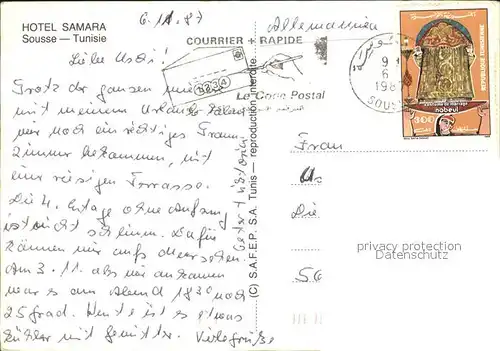 HOTEL SAMARA
Sousse — Tunisie
6.11.87
Allemannien
COURRIER + RAPIDE
Le Code Postal
SOUSS
REPUBLIQUE TUNISIENNE
nabeul
300
Liebe Uschi!
Trotz der ganzen
mit meinem Urlaub haben
wir noch ein richtiges Traum-
zimmer bekommen, mit
einer riesigen Terrasse.
Die 4. Etage ohne Aufzug
ist nicht schlimm. Dafür
können wir aufs Meer sehen.
Am 3.11. als wir ankamen
war es am Abend 18³⁰ noch
25 grad. Heute ist es etwas
kühler mit Gewitter. Viele Grüße
(C) S.A.F.E.P. S.A. Tunis — reproduction interdite.
Frau
Die
privacy protection
Datenschutz